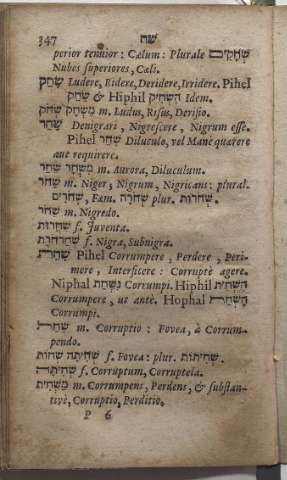 347 שח
perior tenuior : Cælum : Plurale שְׁחָקִים
Nubes superiores, Cæli.
שָׂחַק Ludere, Ridere, Deridere, Irridere. Pihel
שִׂחֵק & Hiphil הִשְׂחִיק Idem.
שְׂחֹק מִשְׂחָק m. Ludus, Risus, Derisio.
שָׁחַר Denigrari, Nigrescere, Nigrum esse.
Pihel שִׁחֵר Diluculo, vel Manè quærere
aut requirere.
שַׁחַר מִשְׁחָר m. Aurora, Diluculum.
שָׁחֹר m. Niger, Nigrum, Nigricans : plural.
שְׁחֹרִים, Fœm. שְׁחֹרָה plur. שְׁחֹרוֹת.
שְׁחֹר m. Nigredo.
שַׁחֲרוּת f. Juventa.
שְׁחַרְחֹרֶת f. Nigra, Subnigra.
שָׁחַת Pihel Corrumpere, Perdere, Peri-
mere, Interficere : Corruptè agere.
Niphal נִשְׁחַת Corrumpi. Hiphil הִשְׁחִית
Corrumpere, ut antè. Hophal הָשְׁחַת
Corrumpi.
שַׁחַת m. Corruptio : Fovea, à Corrum-
pendo.
שְׁחִיתָה שְׁחוּת f. Fovea : plur. שְׁחִיתוֹת.
שְׁחִיתָה f. Corruptum, Corruptela.
מַשְׁחִית m. Corrumpens, Perdens, & substan-
tivè, Corruptio, Perditio.
P 6